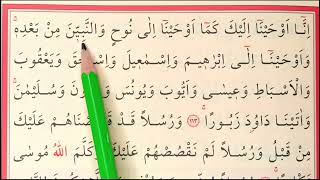 اِنَّٓا اَوْحَيْنَٓا اِلَيْكَ كَمَٓا اَوْحَيْنَٓا اِلٰى نُوحٍ وَالنَّبِيّٖنَ مِنْ بَعْدِهٖۚ
وَاَوْحَيْنَٓا اِلٰٓى اِبْرٰهٖيمَ وَاِسْمٰعٖيلَ وَاِسْحٰقَ وَيَعْقُوبَ
وَالْاَسْبَاطِ وَعٖيسٰى وَاَيُّوبَ وَيُونُسَ وَهٰرُونَ وَسُلَيْمٰنَۚ
وَاٰتَيْنَا دَاوُ۫دَ زَبُورًاۚ ﴿١٦٣﴾ وَرُسُلًا قَدْ قَصَصْنَاهُمْ عَلَيْكَ
مِنْ قَبْلُ وَرُسُلًا لَمْ نَقْصُصْهُمْ عَلَيْكَۜ وَكَلَّمَ اللّٰهُ مُوسٰى